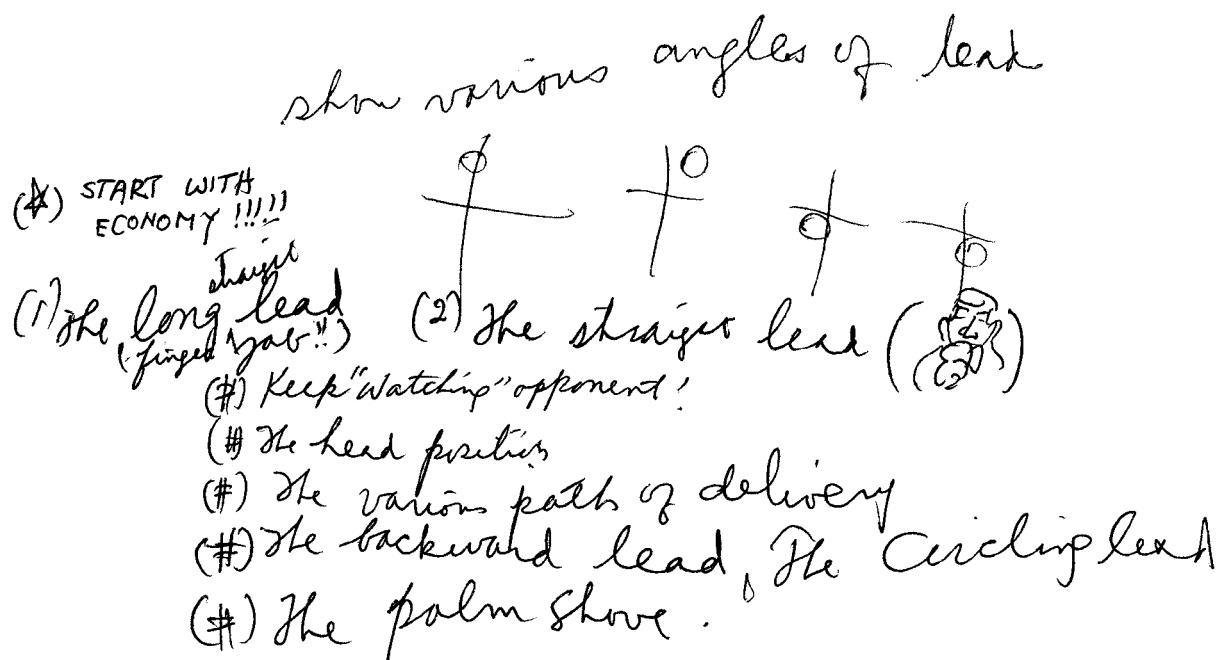 show various angles of lead
(*) START WITH
ECONOMY !!!!!
straight
(1) The long lead
(finger jab!!)
(2) The straight lead ( )
(#) Keep "Watching" opponent!
(#) The head position
(#) The various path of delivery
(#) The backward lead, The Circling lead
(#) The palm shove.